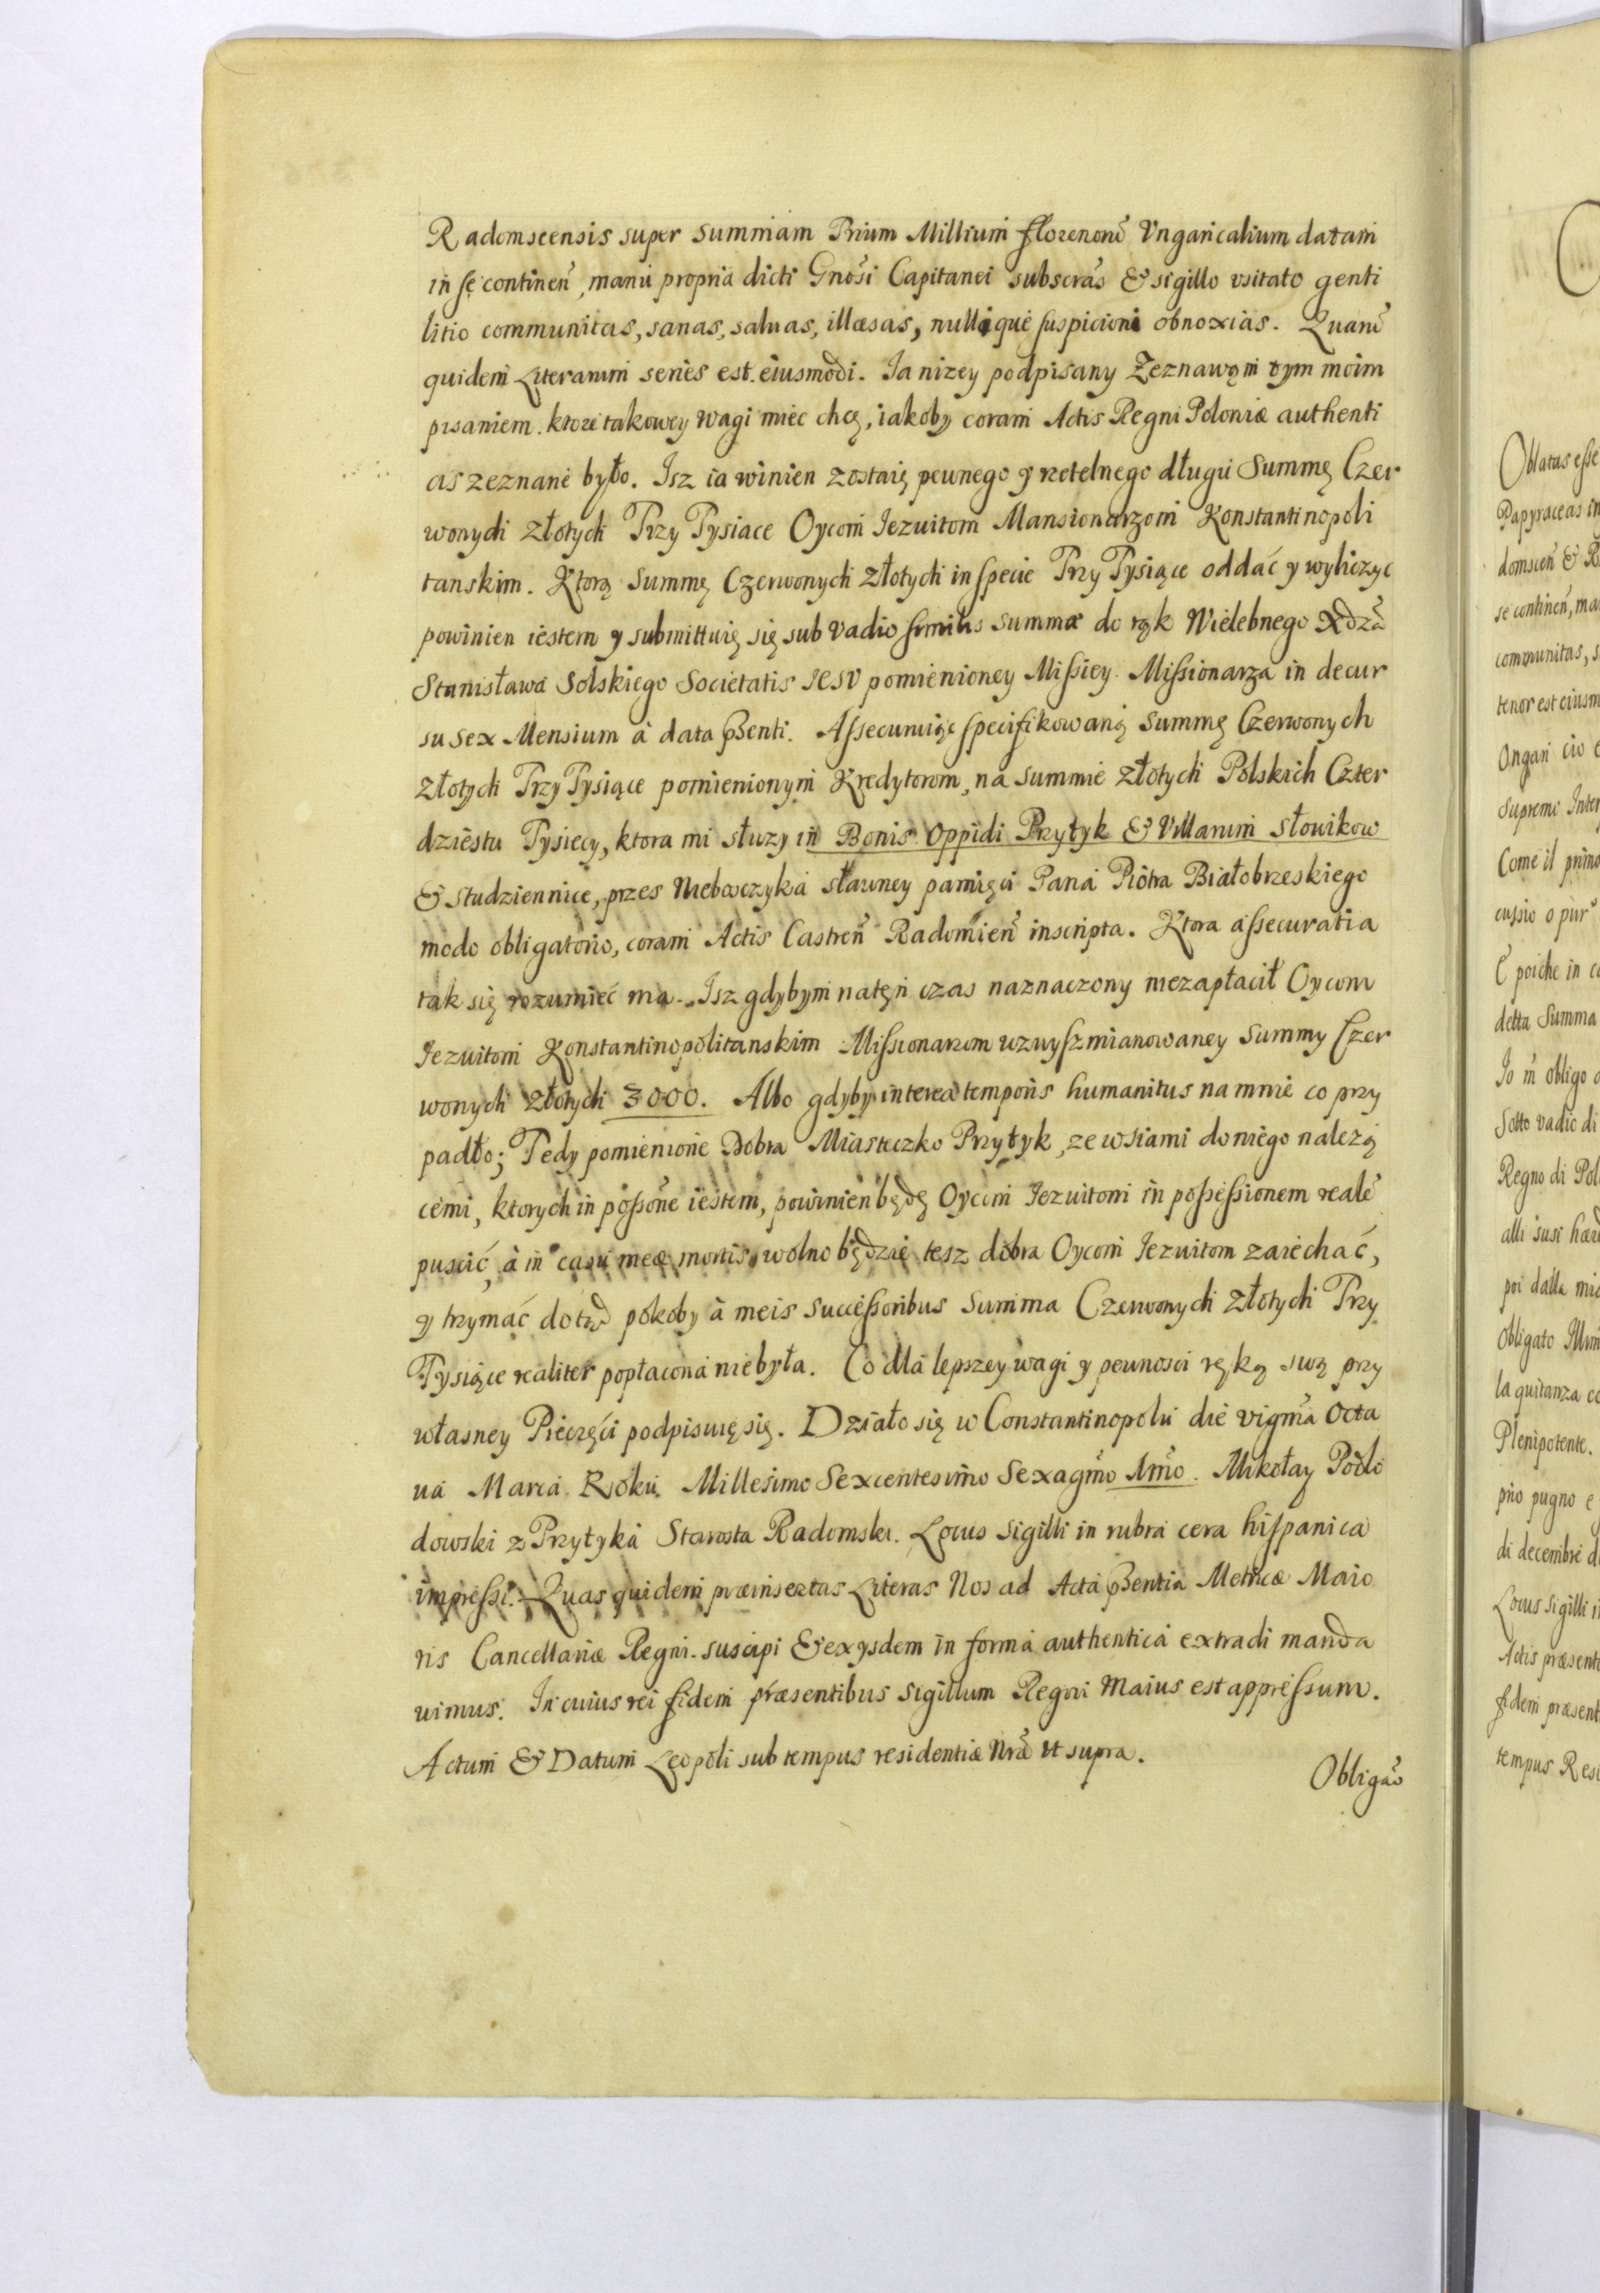 Radomscensis super Summam Trium Millium florenorũ Vngaricalium datam
in se continen̄, manu propria dicti Gnosi Capitanei subscrãs & sigillo vsitato genti
litio communitas, sanas, saluas, illæsas, nullique suspicioni obnoxias. Quarũ
quidem Literarum series est eiusmodi. Ia nizey podpisany Zeznawam tym moim
pisaniem. ktore takowey wagi miec chcę, iakoby coram Actis Regni Poloniæ authenti
cis zeznane było. Isz ia winien zostaię pewnego y rzetelnego długu Summę Czer
wonych Złotych Trzy Tysiace Oycom Iezuitom Mansionarzom Konstantinopoli
tanskim. Ktorą Summę Czerwonych Złotych in specie Trzy Tysiące oddać y wyliczyc
powinien iestem y submittuię się sub vadio similis summæ do rąk Wielebnego Xdzã
Stanisława Solskiego Societatis IESV pomienioney Missiey Missionarza in decur
su sex Mensium à data p̃senti. Assecuruiąc specifikowaną Summę Czerwonych
Złotych Trzy Tysiące pomienionym Kredytorom, na summie Złotych Polskich Czter
dziestu Tysięcy, ktora mi słuzy in Bonis Oppidi Przytyk & Villarum Słouikow
& Studziennice, przes Niebosczyka sławney pamięci Pana Piotra Białobrzeskiego
modo obligatorio, coram Actis Castren̄ Radomien̄ inscripta. Ktora assecuratia
tak się rozumieć ma. Isz gdybym na ten czas naznaczony niezapłacił Oycom
Iezuitom Konstantinopolitanskim Missionarzom wzwyszmianowaney Summy Czer
wonych Złotych 3000. Albo gdyby interea temporis humanitus na mnie co przy
padło; Tedy pomienione Dobra Miasteczko Przytyk, ze wsiami do niego należą
cemi, ktorych in possone iestem, powinien będę Oycom Iezuitom in possessionem realẽ
puscić, à in casu meæ mortis, wolno będzie tesz dobra Oycom Iezuitom zaiechać,
y trzymać dotąd pokoby à meis Successoribus Summa Czerwonych Złotych Trzy
Tysiące realiter popłacona niebyła. Co dla lepszey wagi y pewnosci ręką swą przy
własney Pieczęci podpisuię się. Działo się w Constantinopolu die vigm̃a Octa
ua Marca Roku Millesimo Sexcentesimo Sexagm̃o Imo. Mikołay Podlo
dowski z Przytyka Starosta Radomski. Locus Sigilli in rubra cera hispanica
impressi. Quas quidem præinsertas Literas Nos ad Acta p̃sentia Metricæ Maio
ris Cancellariæ Regni suscipi & exysdem in forma authentica extradi manda
uimus. In cuius rei fidem præsentibus Sigillum Regni Maius est appressum.
Actum & Datum Leopoli sub tempus residentiæ Nræ vt supra.
Obligaõ
Oblatas esse
Papyraceas in
domscen̄ &
se continen̄, ma
communitas, s
tenor est eiusm
Ongari cio
Supremo Inter
Come il primo
cussio o pur
E poiche in
detta Summa
Io m̄ obligo
Sotto vadio di
Regno di Pol
alli susi hæred
poi dalla mi
obligato
la quitanza co
Plenipotente.
prio pugno e
di decembre d
Locus Sigilli i
Actis præsent
fidem præsent
tempus Resi